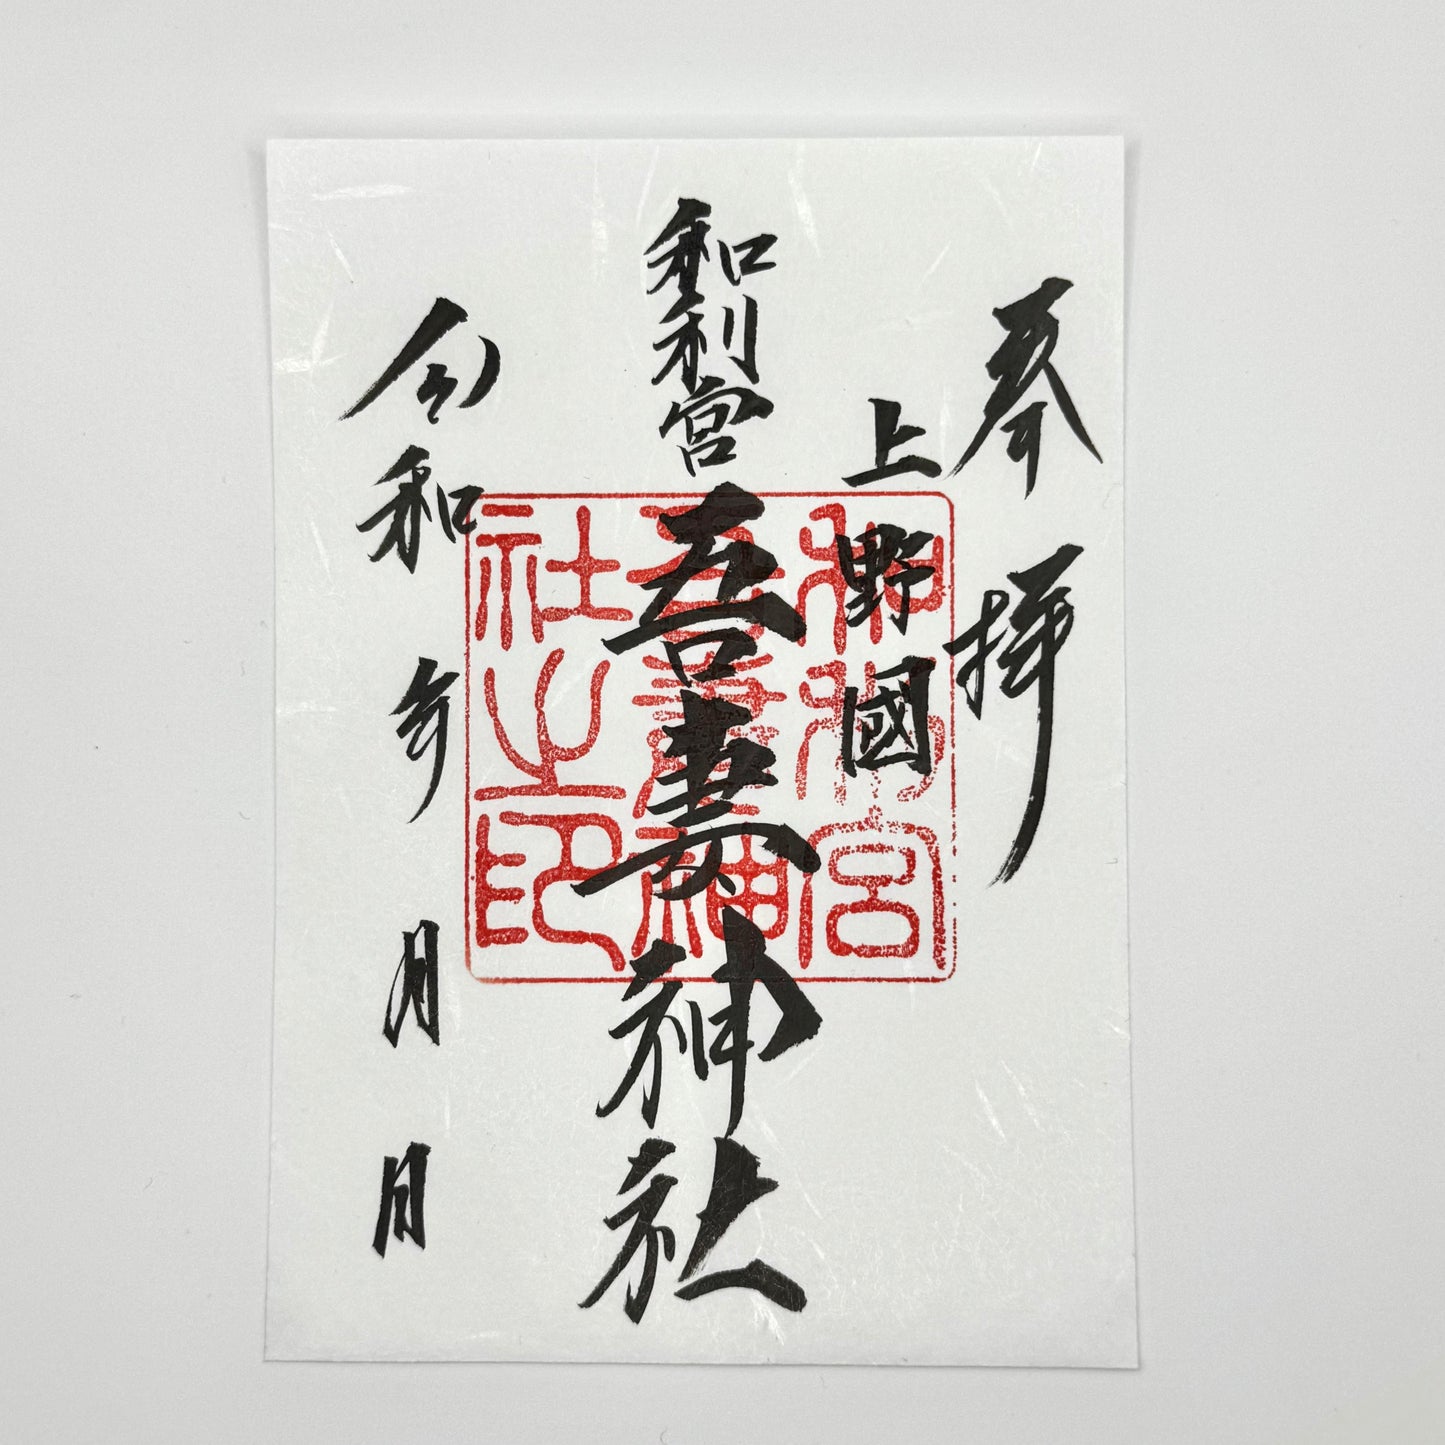 奉拝
上野國
和利宮
吾妻神社
令和 年 月 日
和利宮
吾妻神
社之印